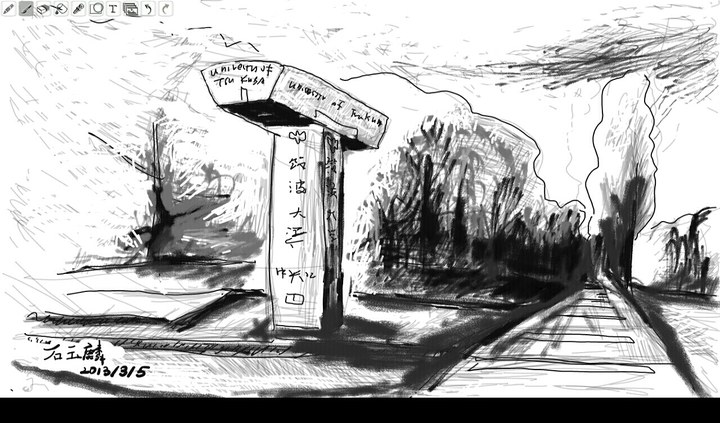 University of
Tsukuba
University of Tsukuba
筑波大学
中央口
石玉麟
2013/3/5